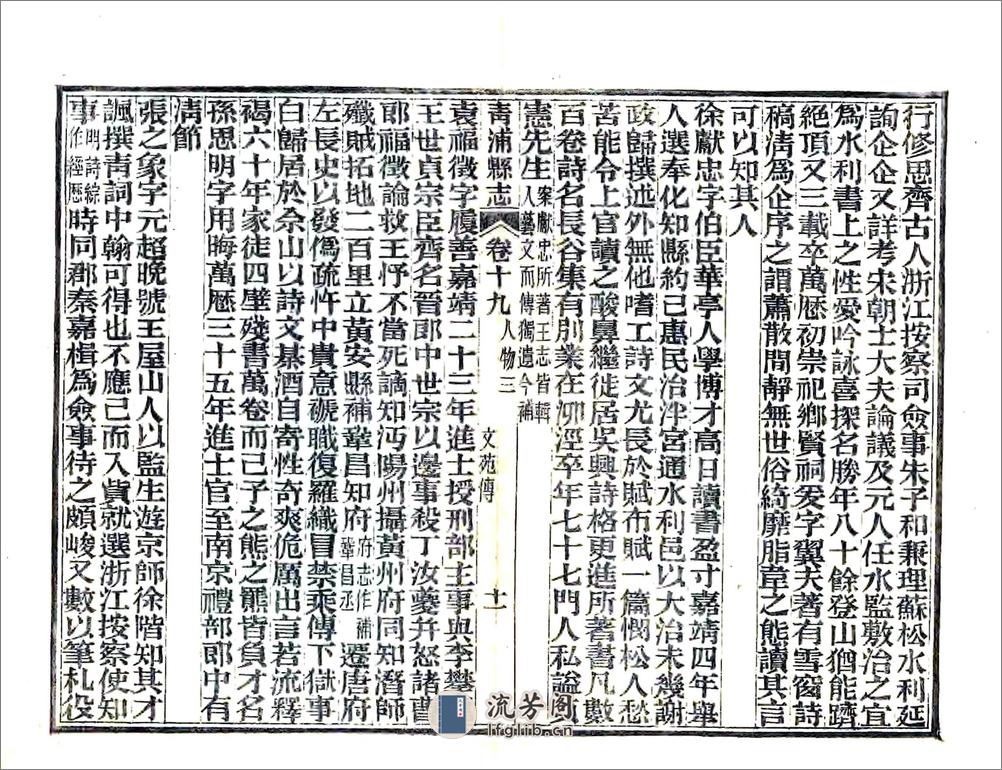 行修思齊古人浙江按察司僉事朱子和兼理蘇松水利延
詢企企又詳考宋朝士大夫論議及元人任水監敷治之宜
爲水利書上之性愛吟詠喜探名勝年八十餘登山猶能躋
絕頂又三載卒萬厯初崇祀鄉賢祠爰字翼夫著有雪窗詩
稿淸爲企序之謂蕭散閒靜無世俗綺靡脂韋之態讀其言
可以知其人
徐獻忠字伯臣華亭人學博才高日讀書盈寸嘉靖四年舉
人選奉化知縣約己惠民治泮宮通水利邑以大治未幾謝
政歸撰述外無他嗜工詩文尤長於賦布賦一篇憫松人愁
苦能令上官讀之酸鼻繼徙居吳興詩格更進所著書凡數
百卷詩名長谷集有別業在泖涇卒年七十七門人私謚貞
憲先生案獻忠所著王志皆輯入藝文而傳獨遺今補
靑浦縣志 卷十九人物三 文苑傳 十一
袁福徵字履善嘉靖二十三年進士授刑部主事與李攀龍
王世貞宗臣齊名晉郎中世宗以邊事殺丁汝夔幷怒諸曹
郎福徵論救王忬不當死謫知沔陽州攝黃州府同知濳師
殲賊拓地二百里立黃安縣補鞏昌知府府志作補鞏昌丞遷唐府
左長史以發僞疏忤中貴意褫職復羅織冒禁乘傳下獄事
白歸居於佘山以詩文棊酒自寄性奇爽佹厲出言若流釋
褐六十年家徒四壁殘書萬卷而已子之熊之羆皆負才名
孫思明字用晦萬厯三十五年進士官至南京禮部郎中有
淸節
張之象字元超晚號王屋山人以監生遊京師徐階知其才
諷撰靑詞中翰可得也不應已而入貲就選浙江按察使知
事明詩綜作經歷時同郡秦嘉楫爲僉事待之頗峻又數以筆札役
流芳阁
lfglib.cn